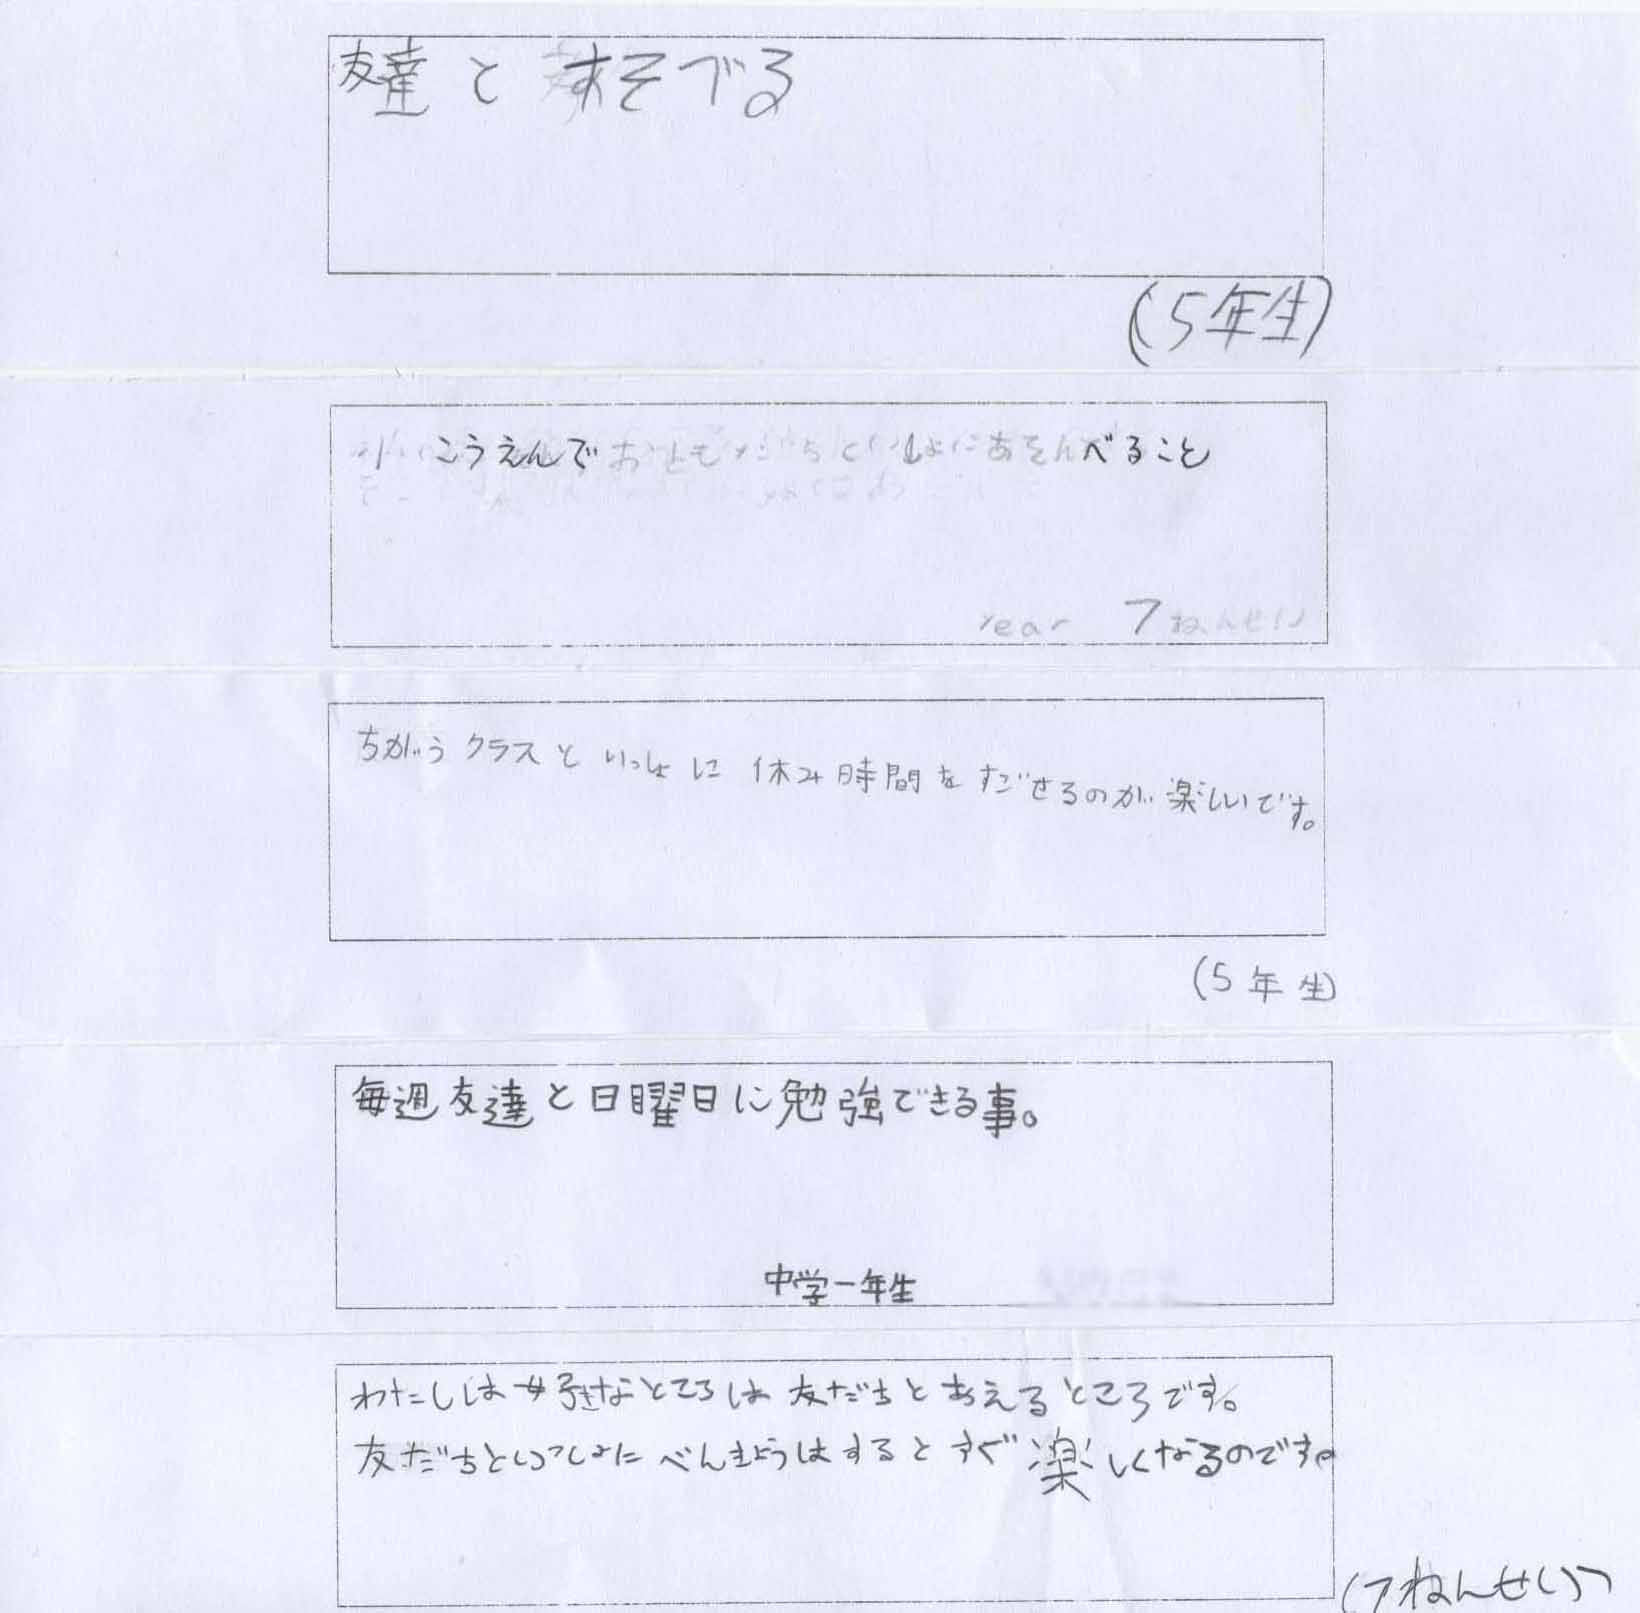 友達とあそべる
(5年生)
こうえんでおともだちといしょにあそんべること
Year 7ねんせい
ちがうクラスといっしょに休み時間をすごせるのが楽しいです。
(5年生)
毎週友達と日曜日に勉強できる事。
中学一年生
わたしは好きなところは友だちとあえるところです。
友だちといっしょにべんきょうはするとすぐ楽しくなるのです。
(7ねんせい)